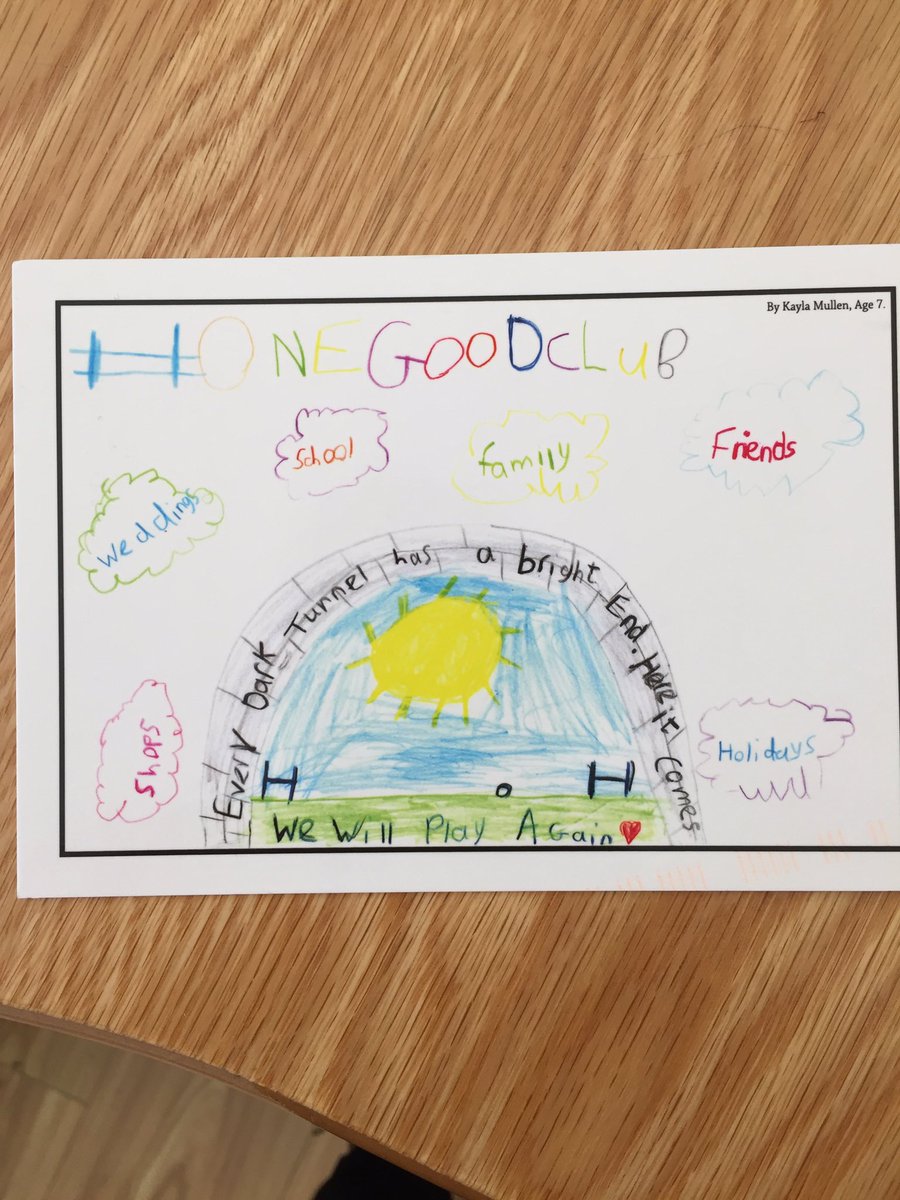 By Kayla Mullen, Age 7.
HONEGOODCLUB
School
family
Friends
Weddings
Every Dark Tunnel has a bright End. Here it Comes
Shops
Holidays
We Will Play Again